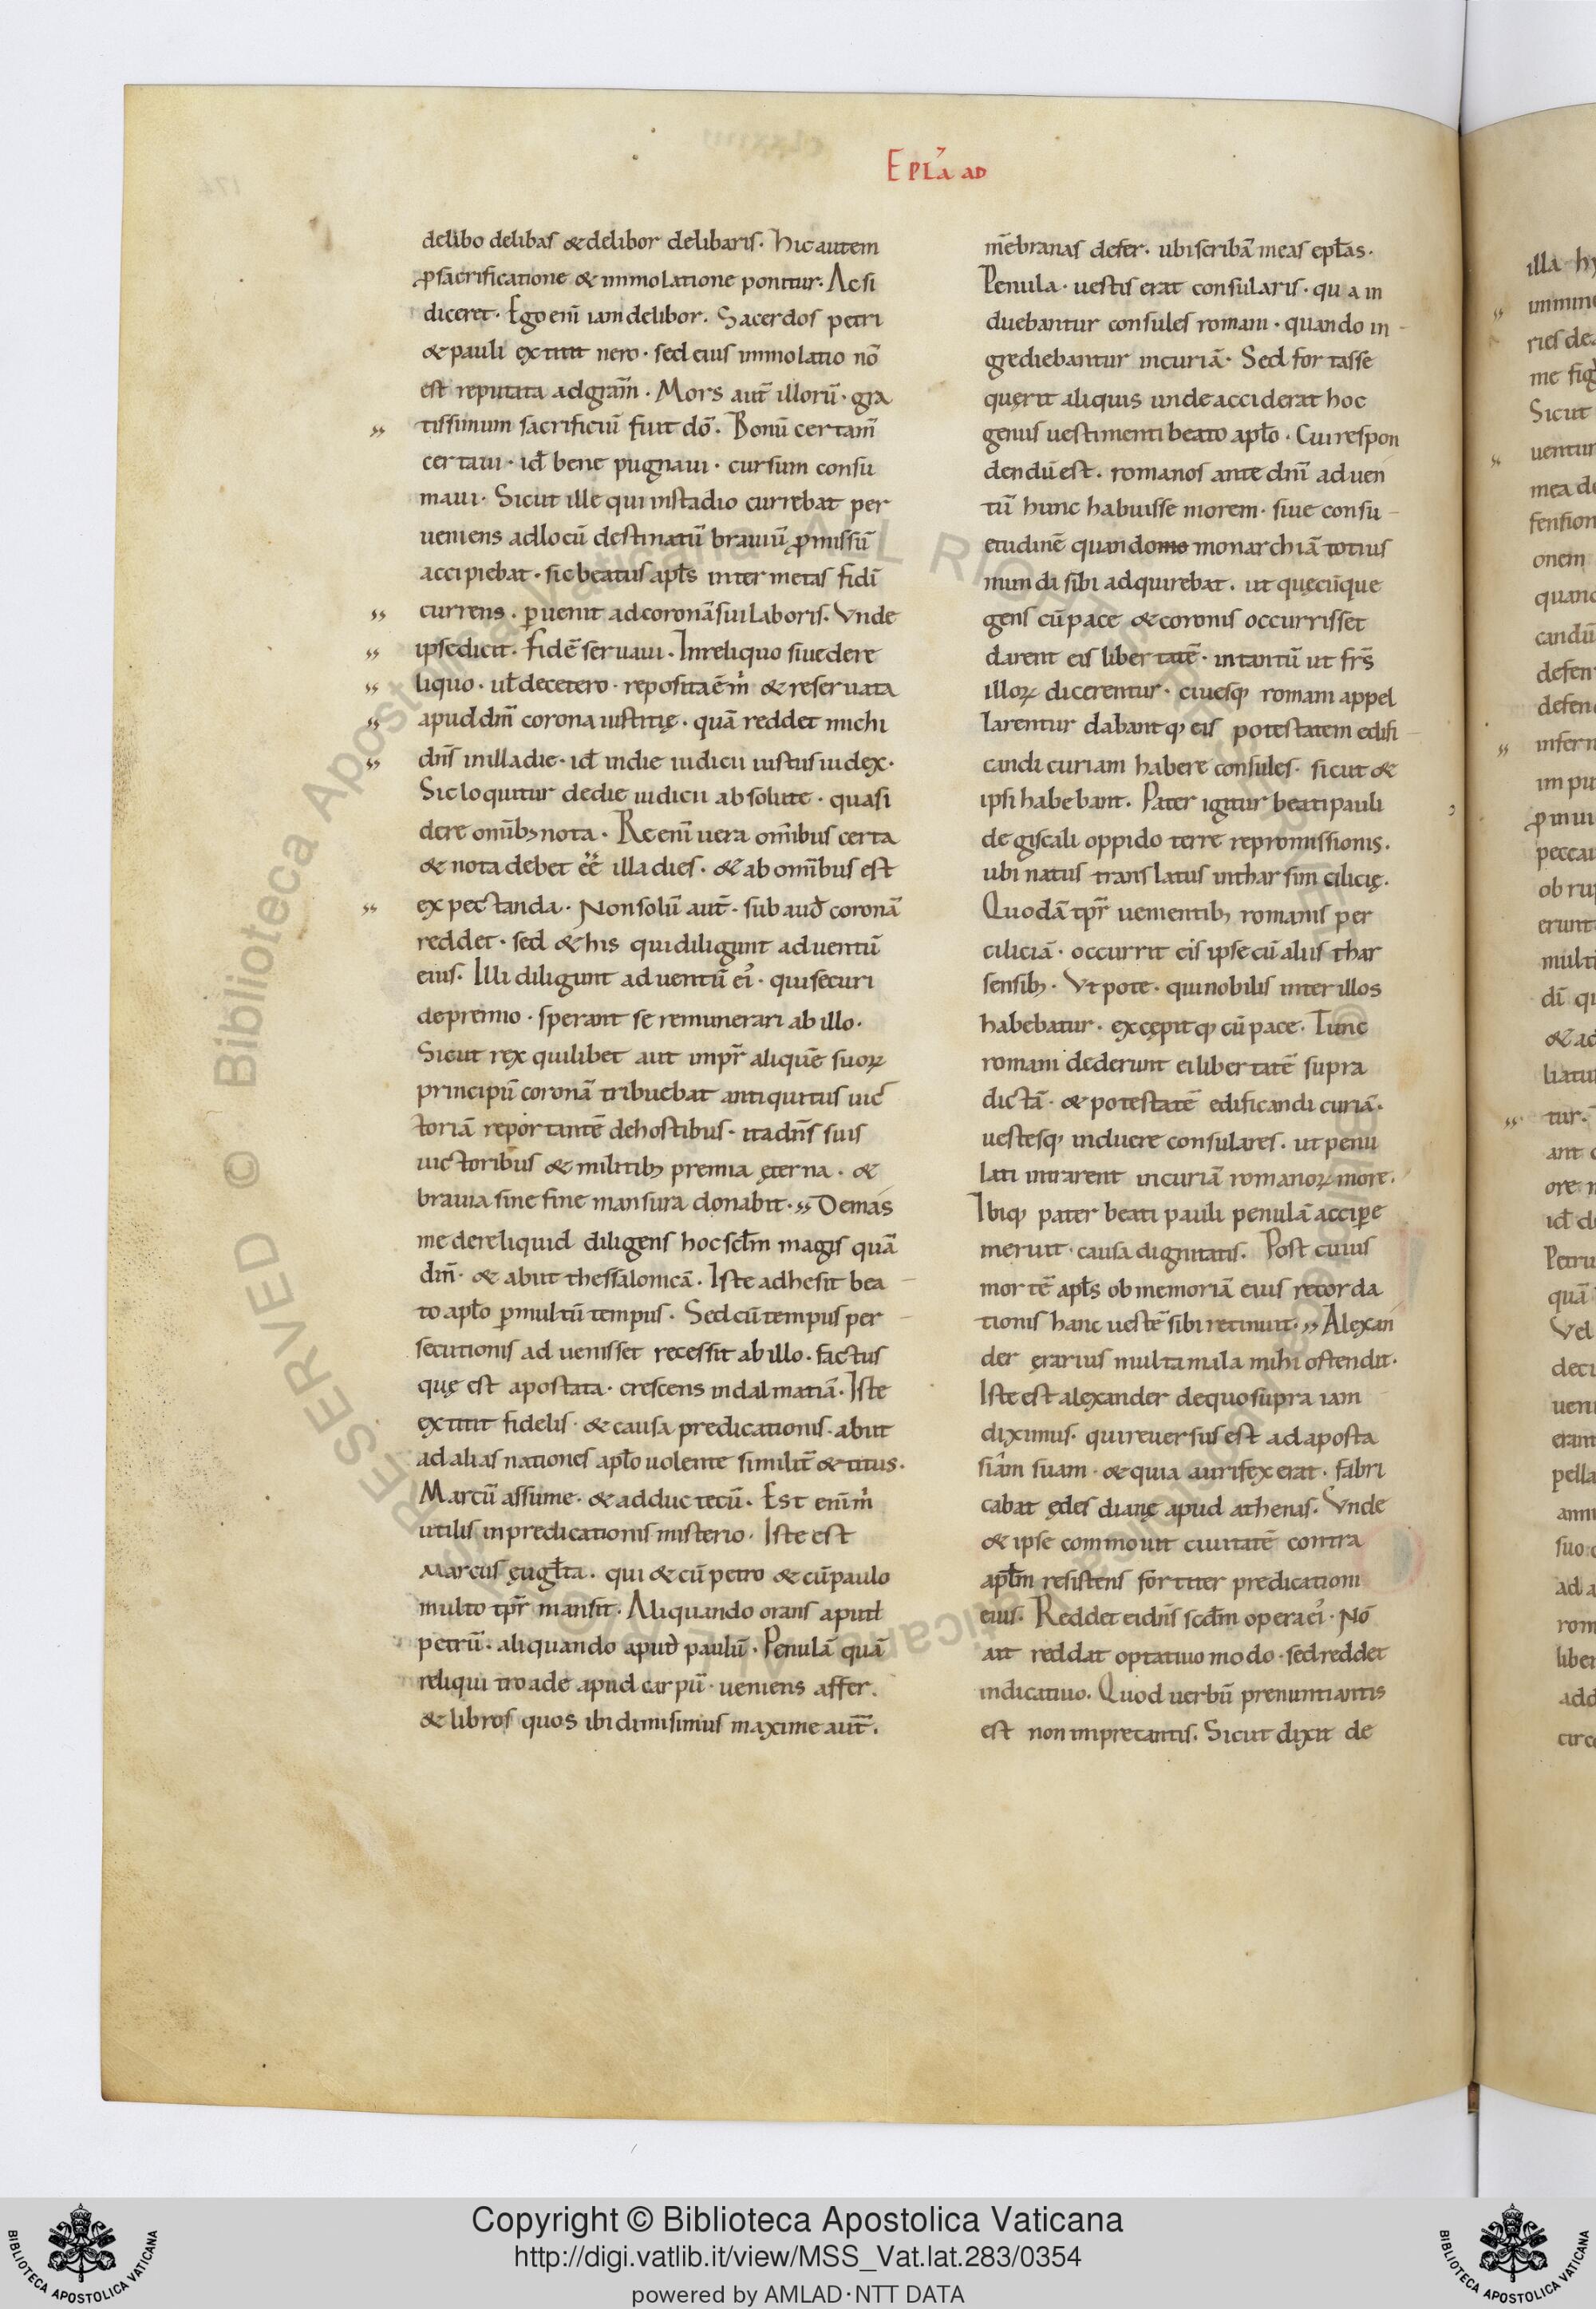 EPLA AD
delibo delibas & delibor delibaris. Hic autem
ꝓ sacrificatione & immolatione ponitur. Ac si
diceret. Ego enī iam delibor. Sacerdos petri
& pauli extitit nero. sed eius immolatio nō
est reputata ad gram̄. Mors aut̄ illorū. gra
tissimum sacrificiū fuit dō. Bonū certam̄
certaui. id̄ bene pugnaui. cursum consu
maui. Sicut ille qui in stadio currebat per
ueniens ad locū destinatū brauiū ꝓmissū
accipiebat. sic beatus apłs inter metas fidī
currens. ꝑuenit ad coronā sui laboris. Vnde
ipse dicit. Fidē seruaui. In reliquo siue dere
liquo. uł de cetero. reposita ē m̄ & reseruata
apud dm̄ corona iustitię. quā reddet michi
dn̄s in illa die. id̄ in die iudicii iustus iudex.
Sic loquitur de die iudicii absolute. quasi
de re omīb; nota. Re enī uera om̄ibus certa
& nota debet ēē illa dies. & ab om̄ibus est
expectanda. Non solū aut̄. subaud̄ coronā
reddet. sed & his qui diligunt aduentū
eius. Illi diligunt aduentū ei᾿. qui securi
de premio. sperant se remunerari ab illo.
Sicut rex quilibet aut impr̄ aliquē suoꝝ
principū coronā tribuebat antiquitus uic
toriā reportantē de hostibus. ita dn̄s suis
uictoribus & militib; premia ęterna. &
brauia sine fine mansura donabit. Demas
me dereliquid diligens hoc scłm magis quā
dm̄. & abiit thessalonicā. Iste adhesit bea
to apło ꝑ multū tempus. Sed cū tempus per
secutionis aduenisset recessit ab illo. factus
quę est apostata. crescens in dalmatiā. Iste
extitit fidelis. & causa predicationis. abiit
ad alias nationes apło uolente similit̄ & titus.
Marcū assume. & adduc tecū. Est enī m̄
utilis in predicationis misterio. Iste est
Marcus ęugłta. qui & cū petro & cū paulo
multo tpr̄ mansit. Aliquando orans aput
petrū. aliquando apud paulū. Penulā quā
reliqui troade apud carpū. ueniens affer.
& libros quos ibi dimisimus maxime aut̄.
mēbranas defer. ubi scribā meas epłas.
Penula. uestis erat consularis. qua in
duebantur consules romani. quando in
grediebantur in curiā. Sed fortasse
quęrit aliquis unde acciderat hoc
genus uestimenti beato apło. Cui respon
dendū est. romanos ante dnī aduen
tū hunc habuisse morem. siue consu
etudinē quando mo monarchiā totius
mundi sibi adquirebat. ut quęcūque
gens cū pace & coronis occurrisset
darent eis libertatē. in tantū ut frs̄
illoꝝ dicerentur. ciuesq; romani appel
larentur dabantq; eis potestatem edifi
candi curiam habere consules. sicut &
ipsi habebant. Pater igitur beati pauli
de giscali oppido terre repromissionis.
ubi natus translatus in tharsim cilicię.
Quodā tpr̄ uenientib; romanis per
ciliciā. occurrit eis ipse cū aliis thar
sensib;. Vtpote. qui nobilis inter illos
habebatur. excępitq; cū pace. Tunc
romani dederunt ei libertatē supra
dictā. & potestatē edificandi curiā.
uestesq; induere consulares. ut penu
lati intrarent in curiā romanoꝝ more.
Ibiq; pater beati pauli penulā accipe
meruit. causa dignitatis. Post cuius
mortē apłs ob memoriā eius recorda
tionis hanc uestē sibi retinuit. Alexan
der ęrarius multa mala mihi ostendit.
Iste est alexander de quo supra iam
diximus. qui reuersus est ad aposta
siam suam. & quia aurifex erat. fabri
cabat ędes dianę apud athenas. Vnde
& ipse commouit ciuitatē contra
apłm resistens fortiter predicationi
eius. Reddet ei dn̄s scd̄m opera ei᾿. Nō
ait reddat optatiuo modo. sed reddet
indicatiuo. Quod uerbū prenuntiantis
est non impretantis. Sicut dixit de
Copyright © Biblioteca Apostolica Vaticana
http://digi.vatlib.it/view/MSS_Vat.lat.283/0354
powered by AMLAD·NTT DATA